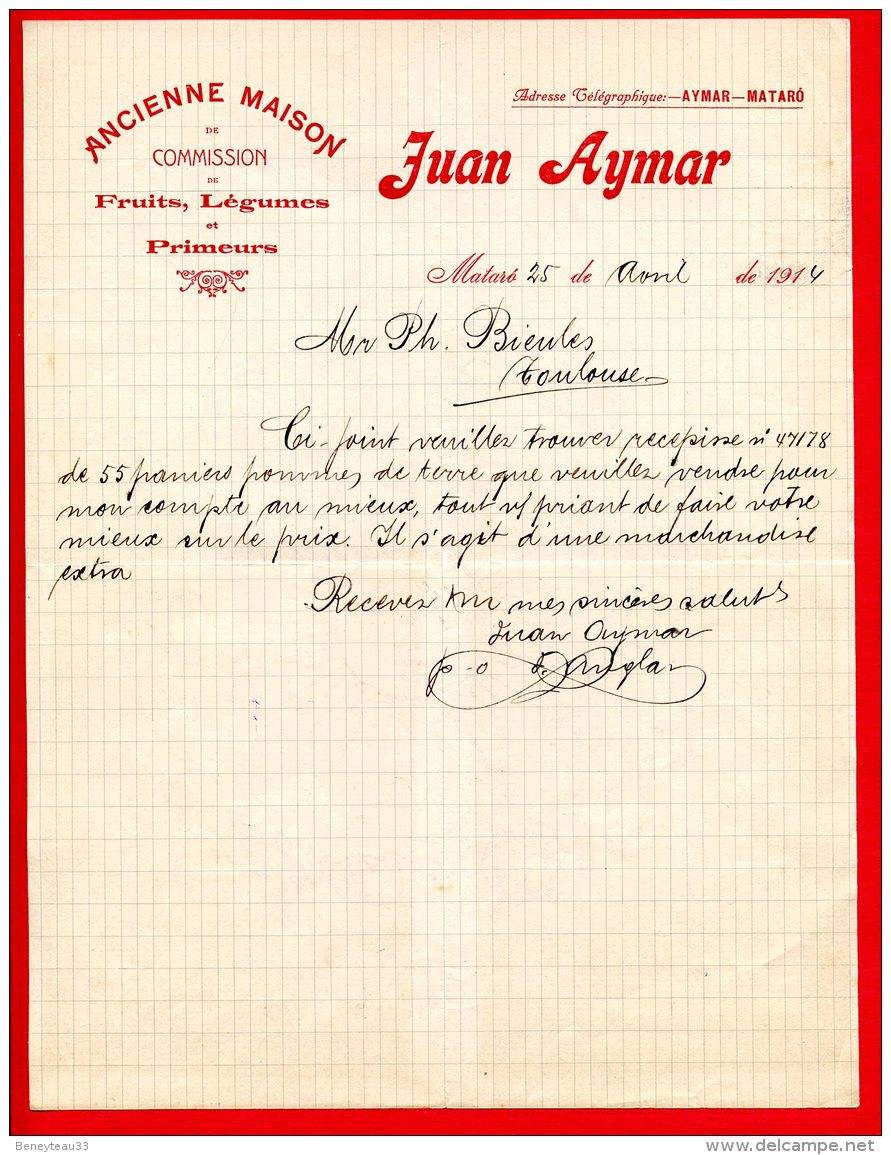 ANCIENNE MAISON
DE
COMMISSION
DE
Fruits, Légumes
et
Primeurs
Adresse Télégraphique:—AYMAR—MATARÓ
Juan Aymar
Mataró 25 de Avril de 1914
Mr Ph. Bieules
Toulouse
Ci-joint veuillez trouver recepisse nº 47178
de 55 paniers pommes de terre que veuillez vendre pour
mon compte au mieux, tout v/ priant de faire votre
mieux sur le prix. Il s'agit d'une marchandise
extra
Recevez Mr mes sincères saluts
Juan Aymar
p-o
Beneyteau33
www.delcampe.net